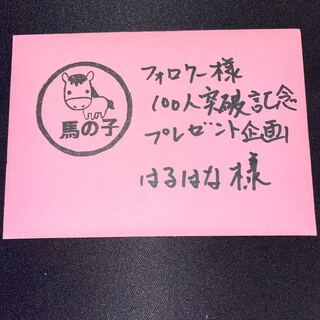 馬の子
フォロワー様
100人突破記念
プレゼント企画
はるはな様